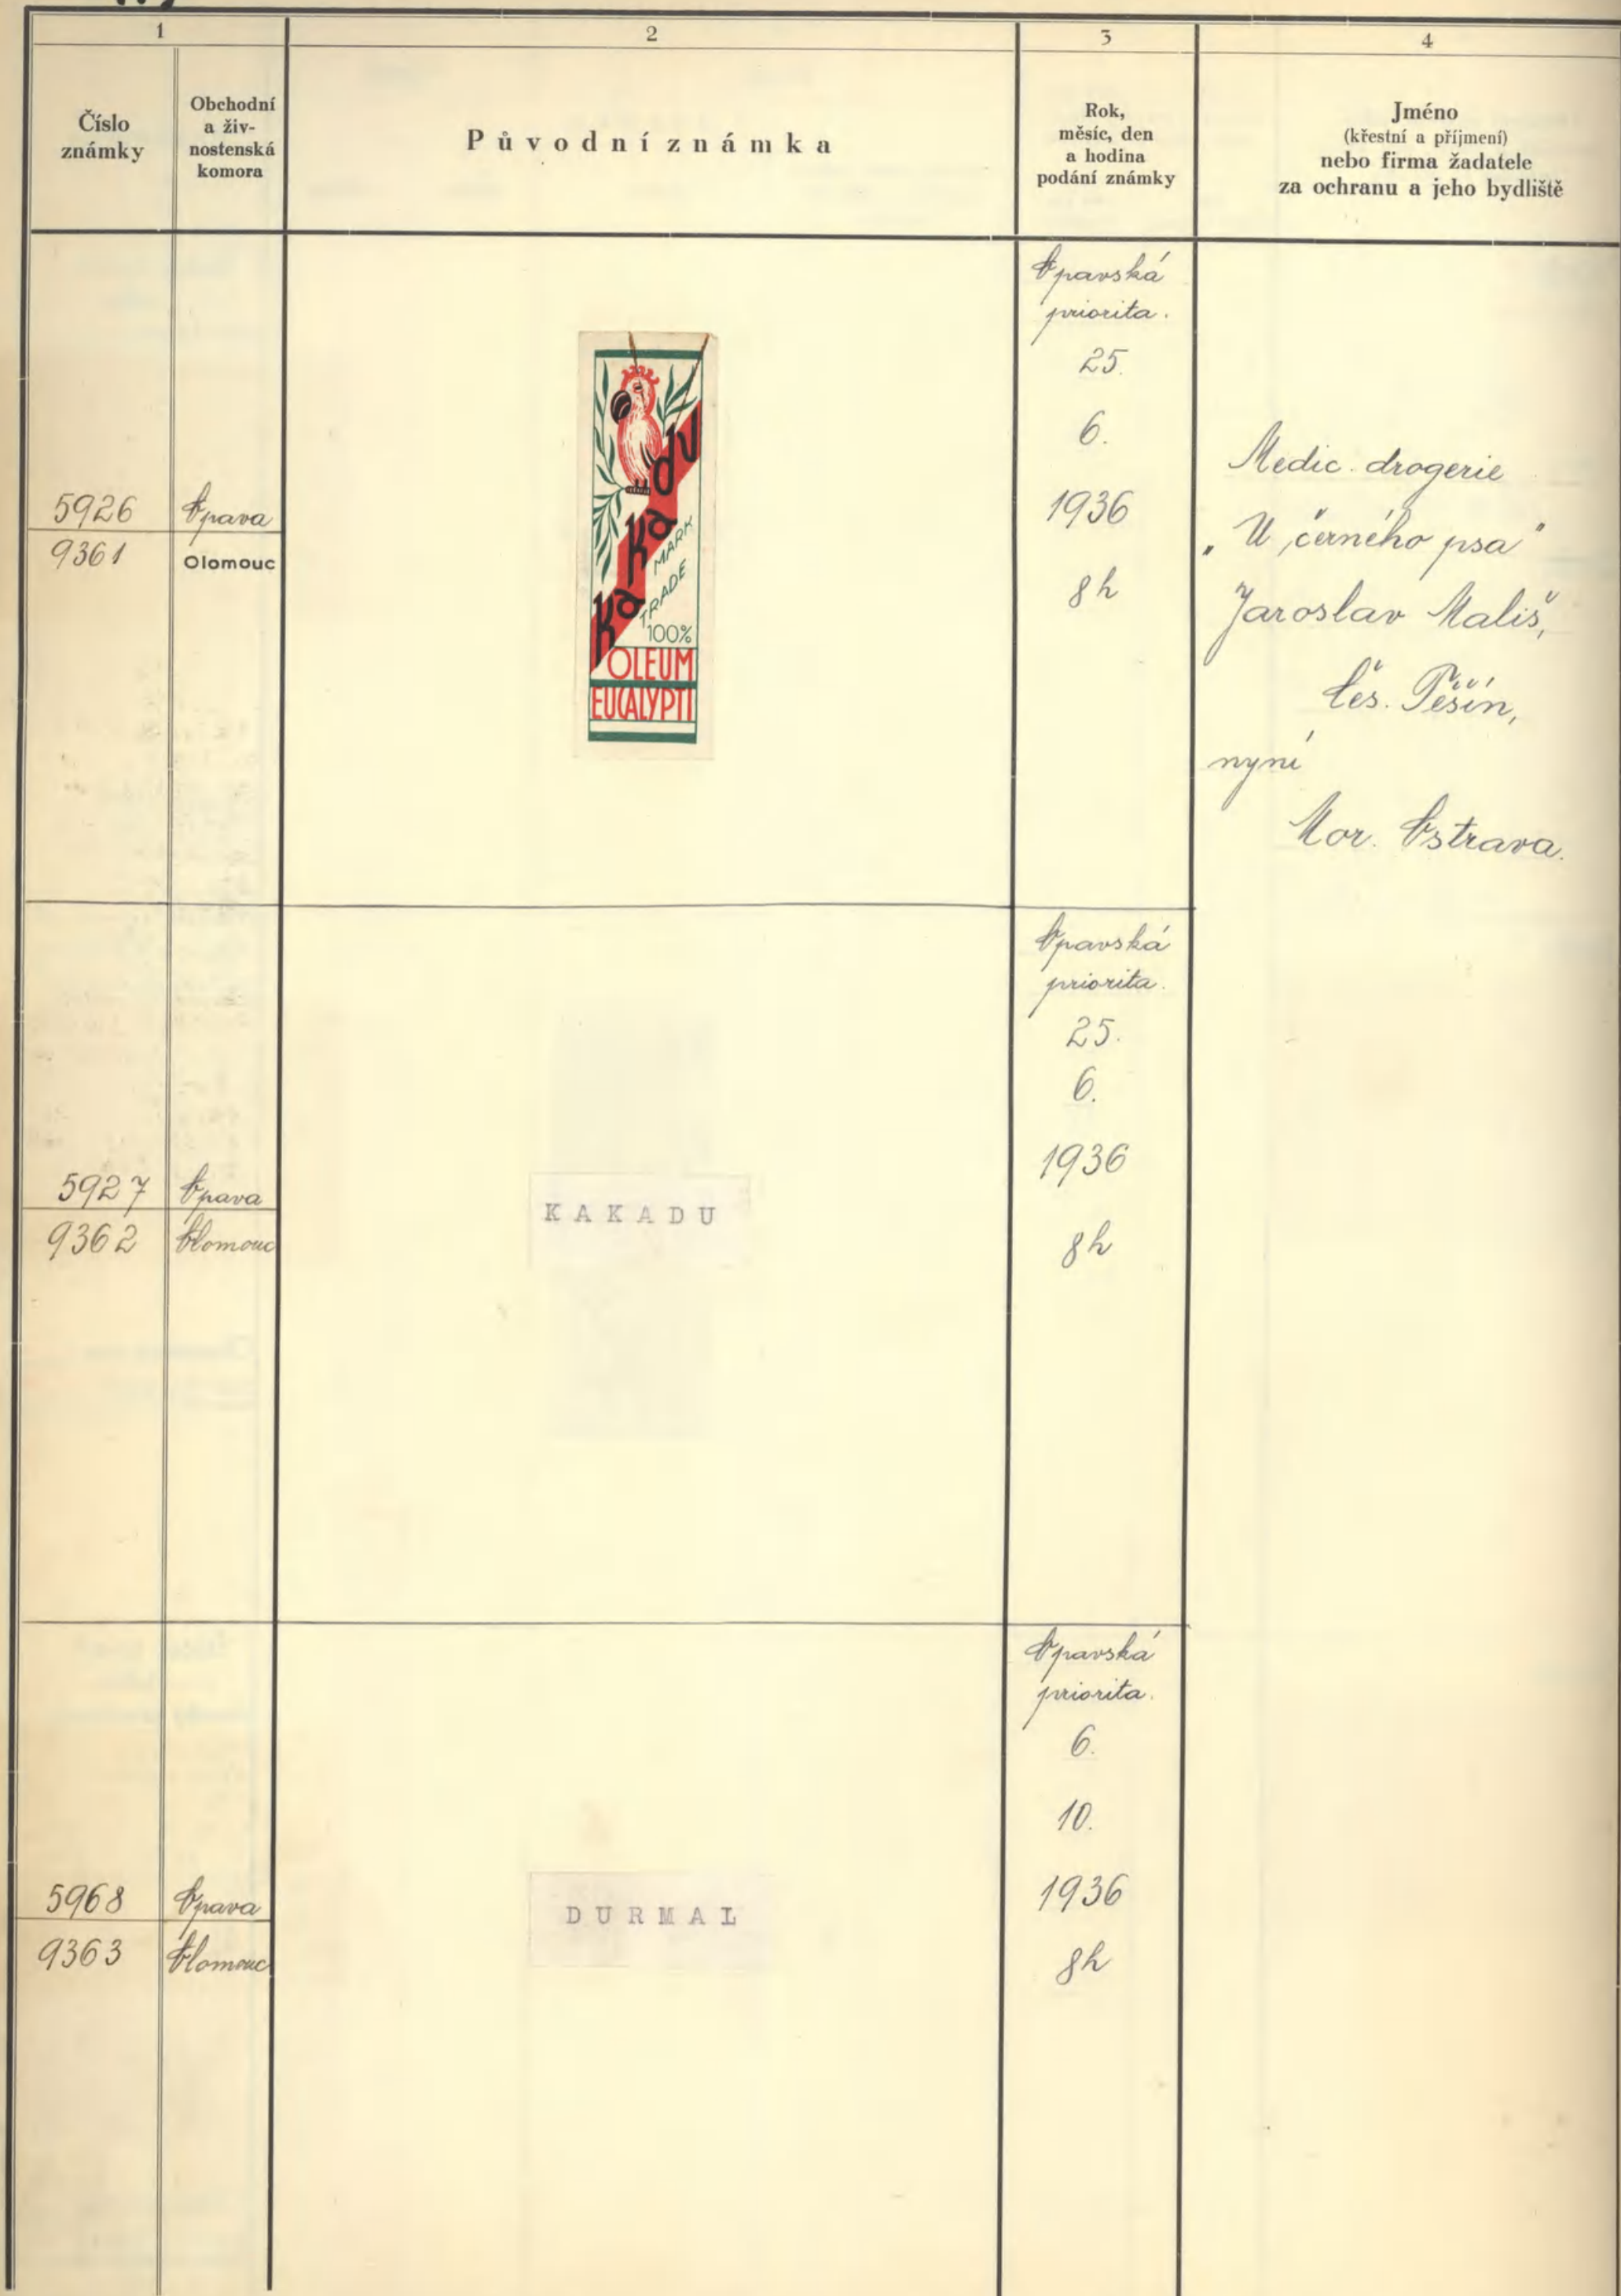 1
2
3
4
Číslo
známky
Obchodní
a živ-
nostenská
komora
Původní známka
Rok,
měsíc, den
a hodina
podání známky
Jméno
(křestní a příjmení)
nebo firma žadatele
za ochranu a jeho bydliště
5926
Opava
9361
Olomouc
Kakadu
TRADE MARK
100%
OLEUM
EUCALYPTI
Opavská
priorita.
25.
6.
1936
8h
Medic. drogerie
„U černého psa"
Jaroslav Mališ,
Čes. Těšín,
nyní
Mor. Ostrava.
5927
Opava
9362
Olomouc
KAKADU
Opavská
priorita.
25.
6.
1936
8h
5968
Opava
9363
Olomouc
DURMAL
Opavská
priorita.
6.
10.
1936
8h